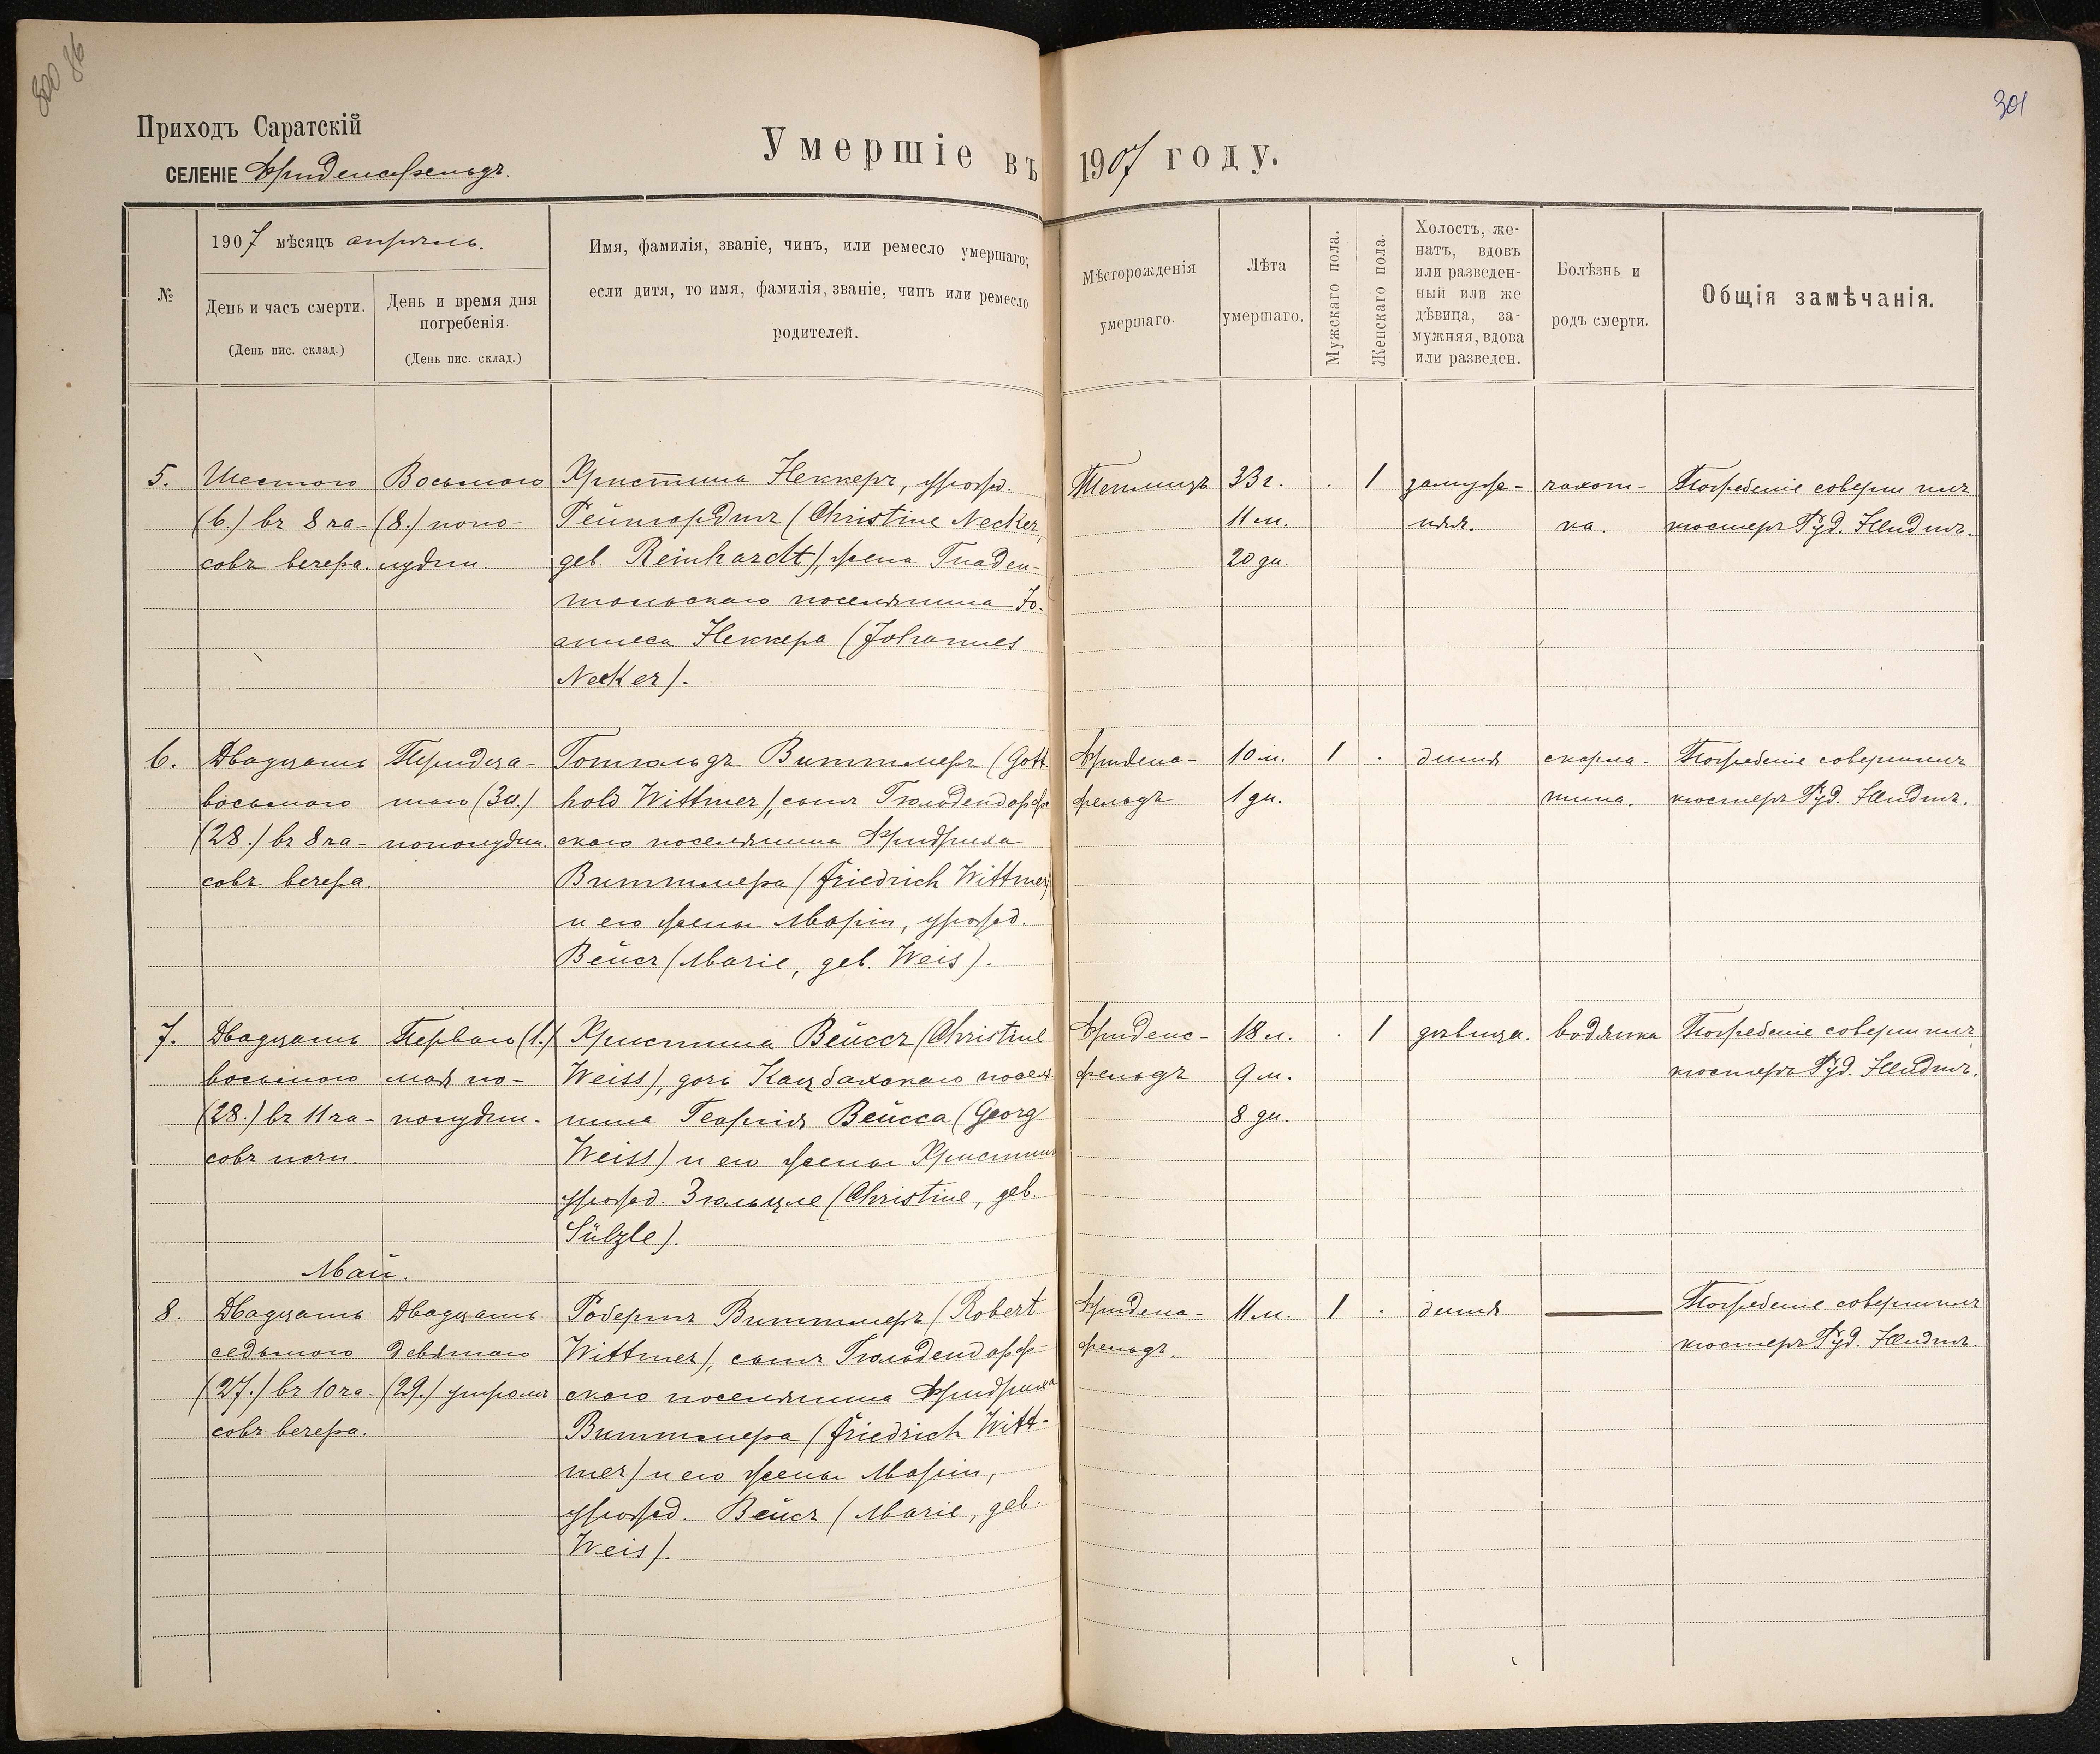 300 86
301
Приходъ Саратскій
СЕЛЕНІЕ Фриденсфельдъ.
Умершіе въ 1907 году.
№
1907 мѣсяцъ апрѣль.
День и часъ смерти.
(День пис. склад.)
День и время дня
погребенія.
(День пис. склад.)
Имя, фамилія, званіе, чинъ, или ремесло умершаго;
если дитя, то имя, фамилія, званіе, чинъ или ремесло
родителей.
Мѣсторожденія
умершаго.
Лѣта
умершаго.
Мужскаго пола.
Женскаго пола.
Холостъ, же-
натъ, вдовъ
или разведен-
ный или же
дѣвица, за-
мужняя, вдова
или разведен.
Болѣзнь и
родъ смерти.
Общія замѣчанія.
5.
Шестого
(6.) въ 8 ча-
совъ вечера.
Восьмого
(8.) попо-
лудни.
Христина Неккеръ, урожд.
Рейнгардтъ (Christine Necker,
geb. Reinhardt), жена Гнаден-
тальскаго поселянина Іо-
аннеса Неккера (Johannes
Necker).
Теплицъ
33 г.
11 м.
20 дн.
. 1
замуж-
няя.
чахот-
ка.
Погребеніе совершилъ
кюстеръ Руд.
6.
Двадцать
восьмого
(28.) въ 8 ча-
совъ вечера.
Тридца-
таго (30.)
пополудни.
Готгольдъ Виттмеръ (Gott-
hold Wittmer), сынъ Гнюльдендорф-
скаго поселянина Фридриха
Виттмера (Friedrich Wittmer)
и его жены Маріи, урожд.
Вейсъ (Marie, geb. Weis).
Фриденс-
фельдъ
10 м.
1 дн.
1 .
дитя
скарла-
тина.
Погребеніе совершилъ
кюстеръ Руд.
7.
Двадцать
восьмого
(28.) въ 11 ча-
совъ ночи.
Перваго (1.)
мая по-
полудни.
Христина Вейссъ (Christine
Weiss), дочь Кацбахскаго поселя-
нина Георгія Вейсса (Georg
Weiss) и его жены Христины
урожд. Зюльцле (Christine, geb.
Sülzle).
Фриденс-
фельдъ
18 л.
9 м.
8 дн.
. 1
дѣвица.
водянка
Погребеніе совершилъ
кюстеръ Руд.
Май.
8.
Двадцать
седьмого
(27.) въ 10 ча-
совъ вечера.
Двадцать
девятаго
(29.) утромъ
Робертъ Виттмеръ (Robert
Wittmer), сынъ Гюльдендорф-
скаго поселянина Фридриха
Виттмера (Friedrich Witt-
mer) и его жены Маріи,
урожд. Вейсъ (Marie, geb.
Weis).
Фриденс-
фельдъ.
11 м.
1 .
дитя
Погребеніе совершилъ
кюстеръ Руд.